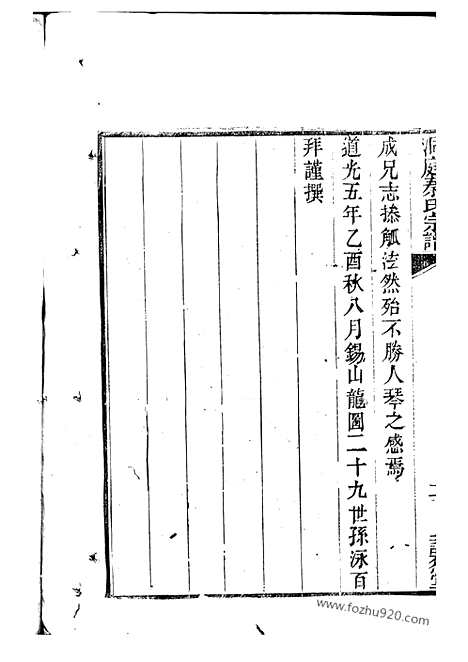 洞庭秦氏宗譜
成兄志操觚泫然殆不勝人琴之感焉
道光五年乙酉秋八月錫山龍圖二十九世孫泳百
拜謹撰
www.fozhu920.com